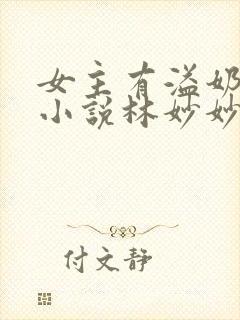 女主有溢奶
小说林妙妙
付文静